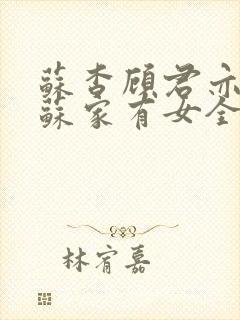 蘇杏顧君亦
蘇家有女全
林宥嘉